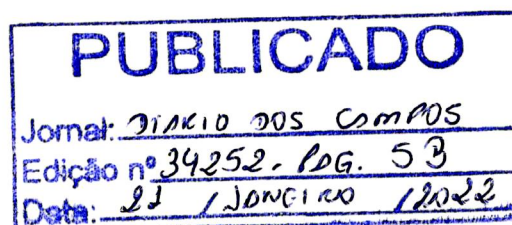 PUBLICADO
Jornal: DIARIO DOS CAMPOS
Edição nº 34252. PAG. 5B
Data: 21 / JANEIRO / 2022